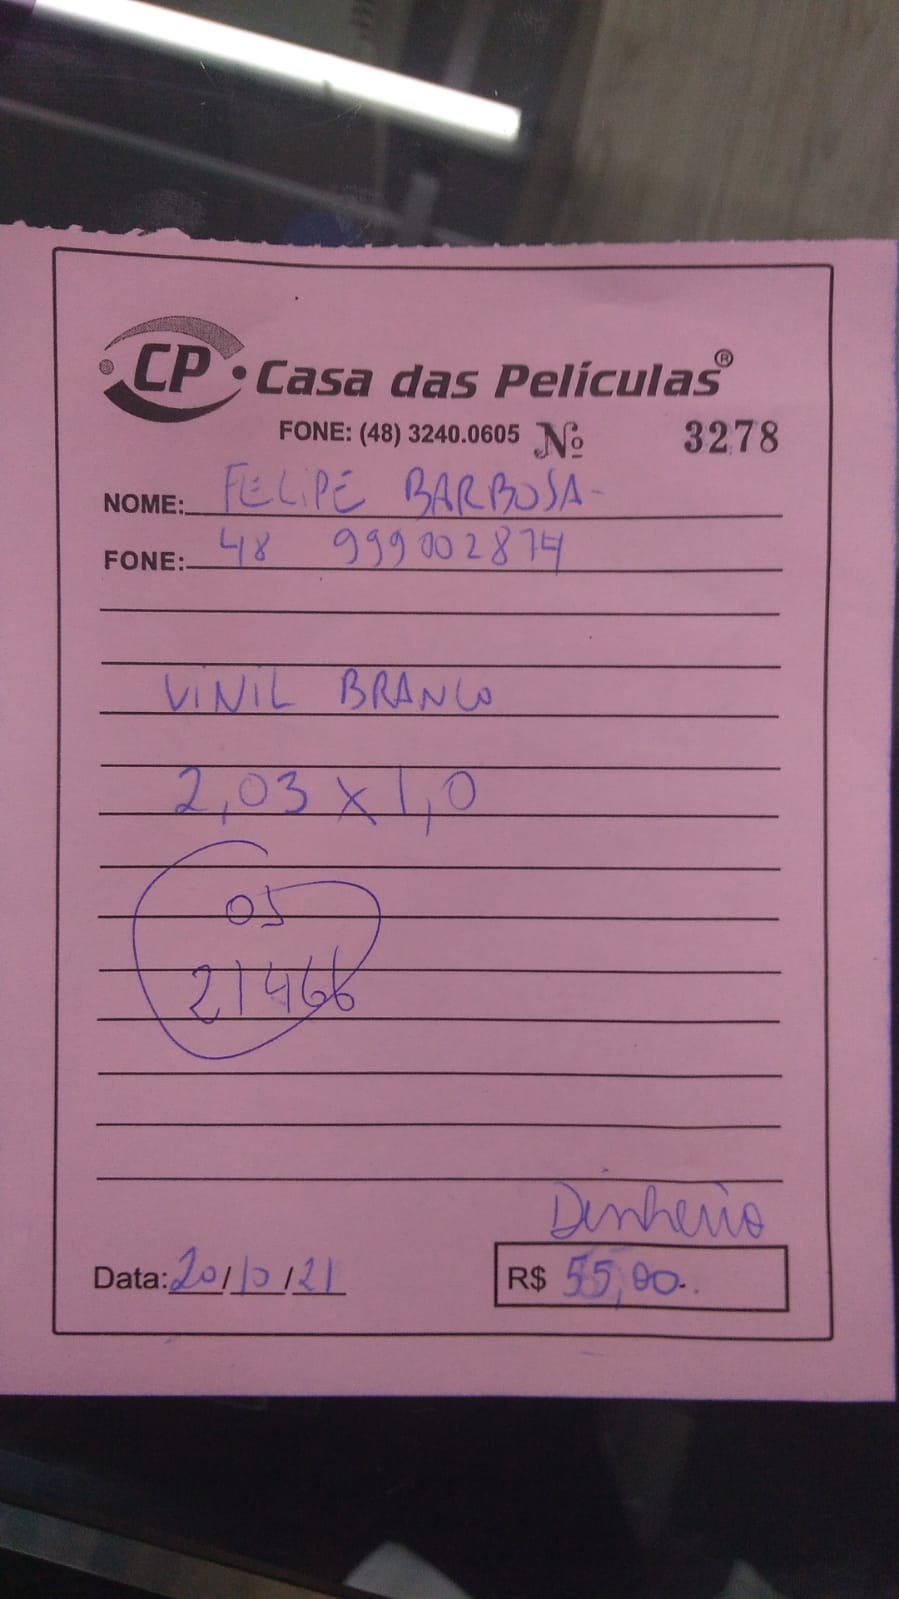 CP • Casa das Películas®
FONE: (48) 3240.0605 Nº 3278
NOME: FELIPE BARBOSA-
FONE: 48 999002874
VINIL BRANCO
2,03 x 1,0
05
21466
Dinheiro
Data: 20/10/21 R$ 55,00.